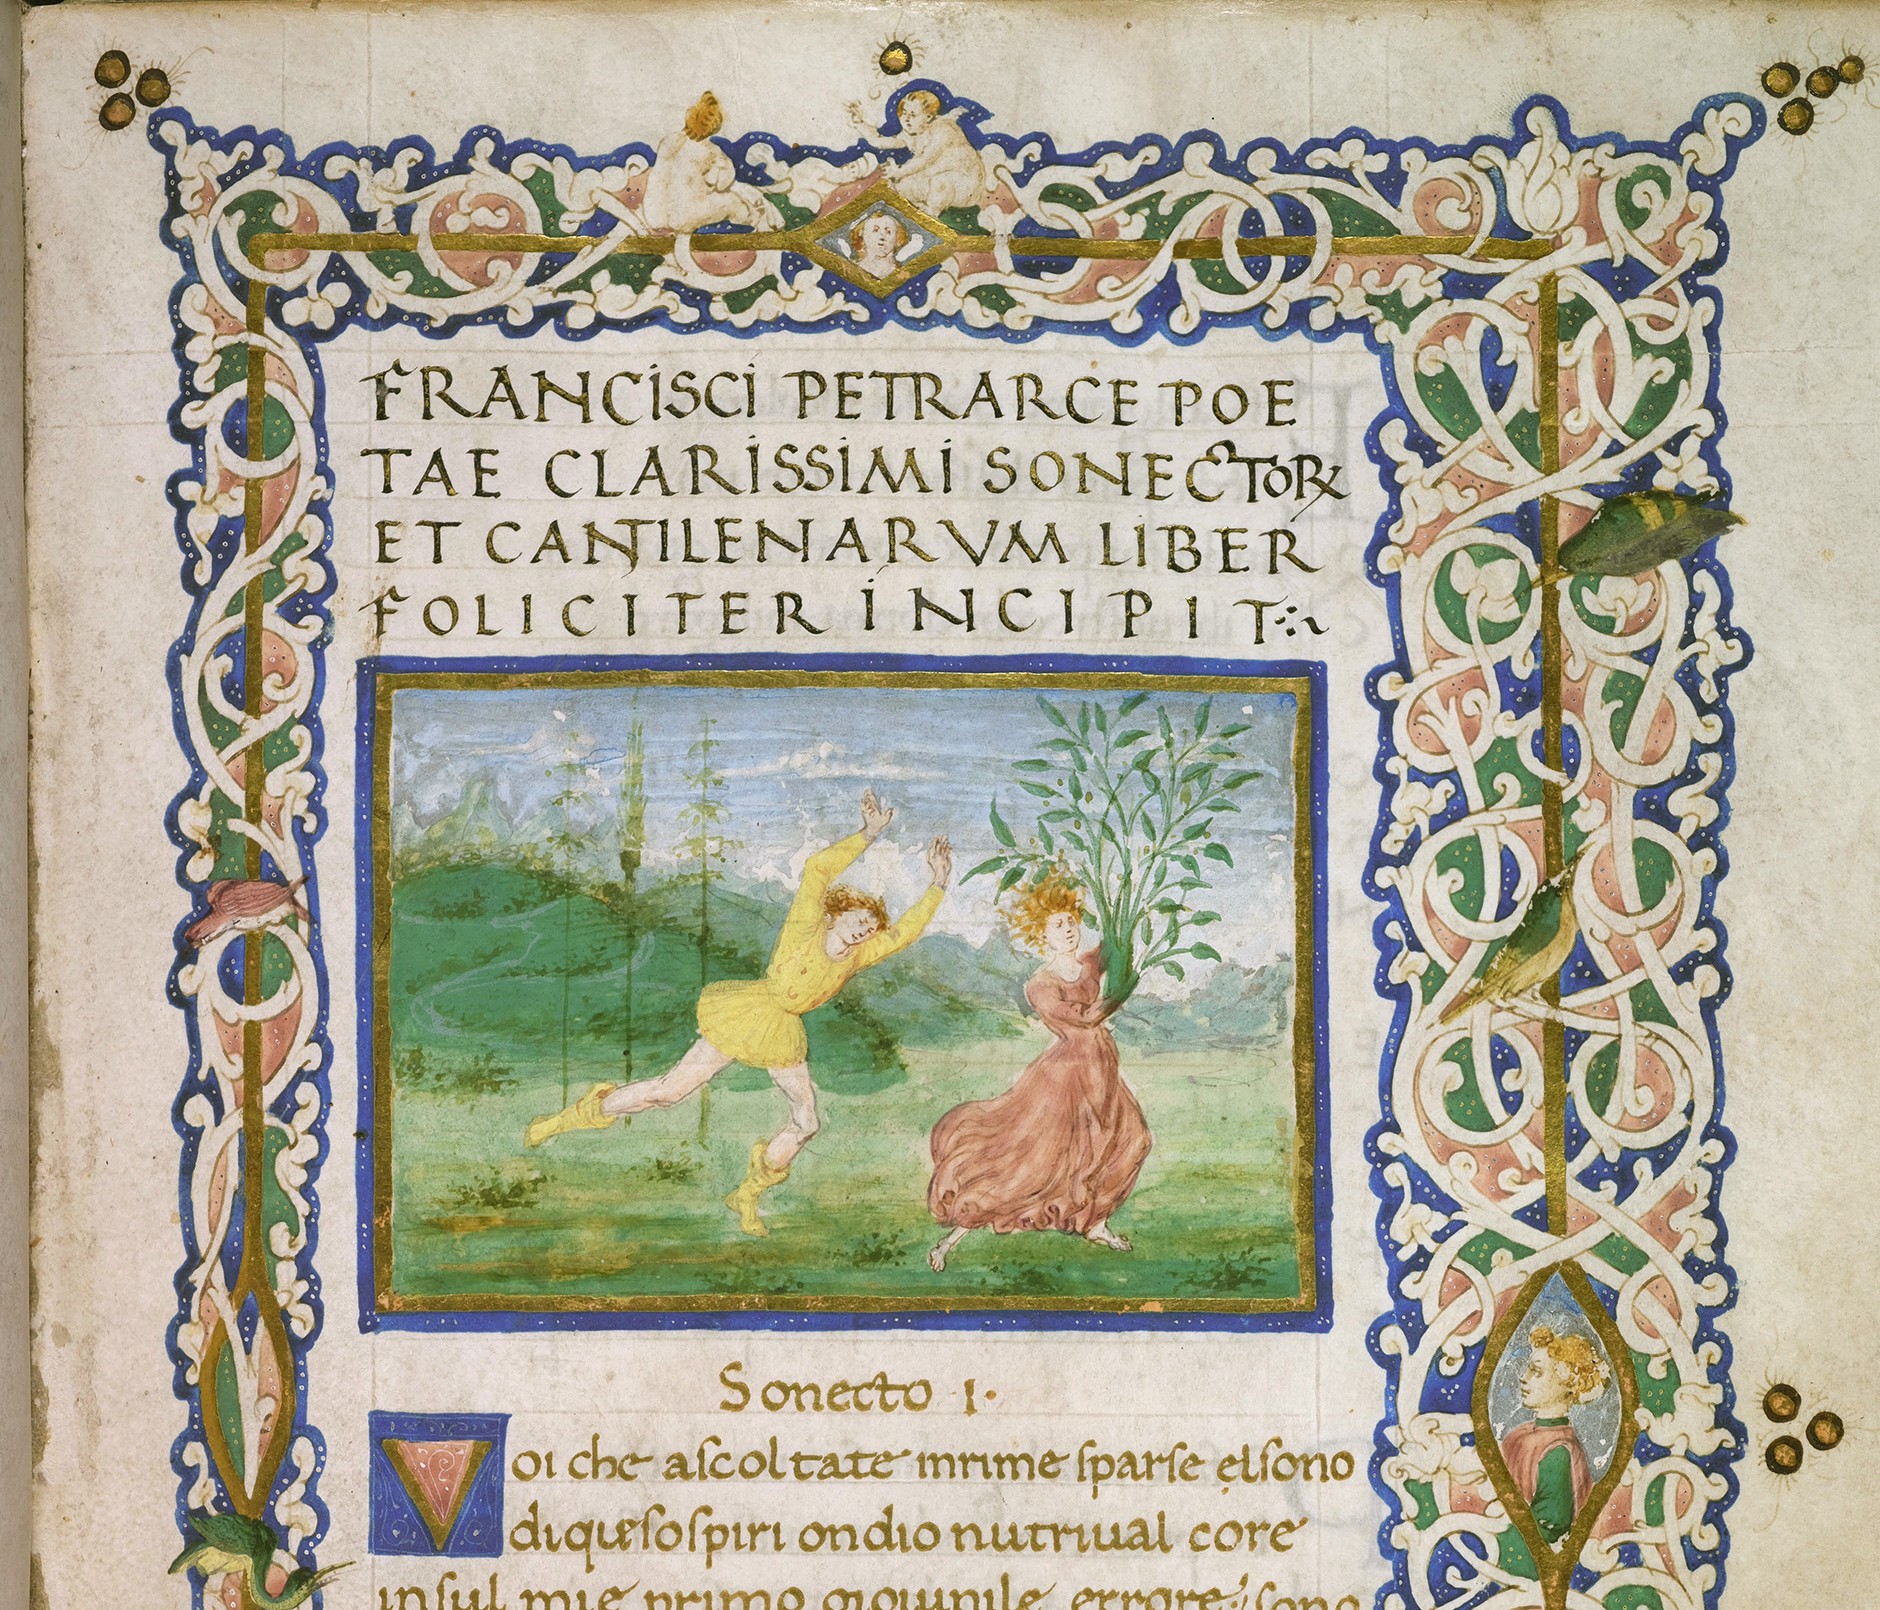 FRANCISCI PETRARCE POE
TAE CLARISSIMI SONECTORꝜ
ET CANTILENARVM LIBER
FOLICITER INCIPIT
Sonecto 1.
Voi che ascoltate inrime sparse elsono
diquesospiri ondio nutriual core
insul mie primo giouinile errore sono